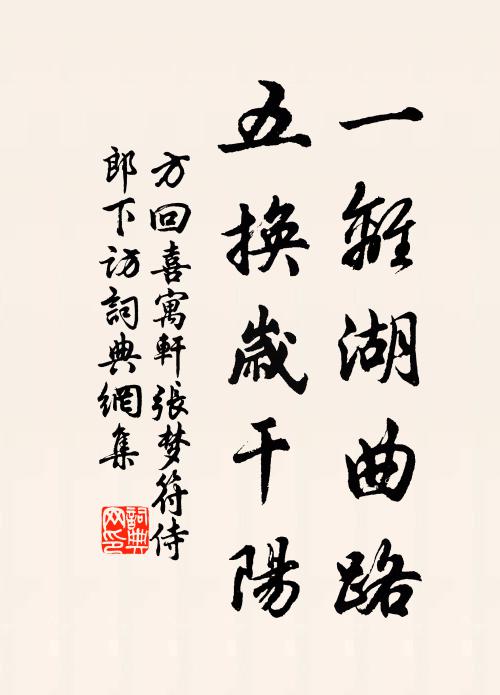 一離湖曲路
五換歲干陽
方回喜寓軒張梦符侍
郎下訪詞典網集
詞典
网印